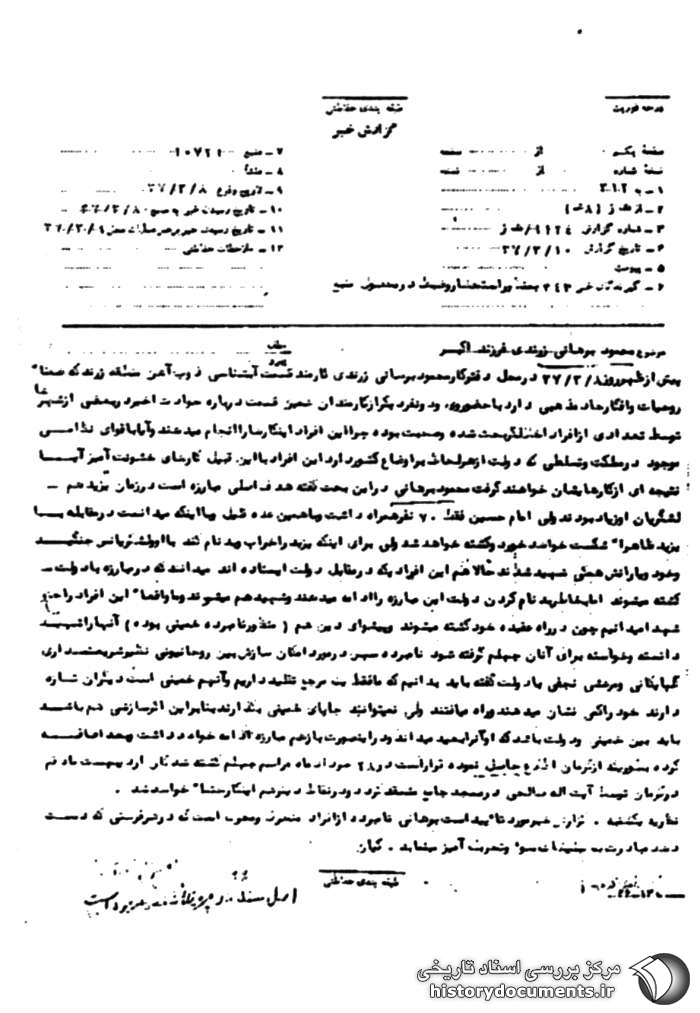 درجه فوریت
طبقه بندی حفاظتی
گزارش خبر
صفحه یکم از صفحه
نسخه شماره از نسخه
۱ - به ۳۰۲
۲ - از
۳ - شماره گزارش
۴ - تاریخ گزارش ۳۷/۳/۱۰
۵ - پیوست
۶ - گیرندگان خبر
۷ - منبع ۱۰۷۲۱
۸ - منشأ
۹ - تاریخ وقوع ۳۷/۳/۸
۱۰ - تاریخ رسیدن خبر به منبع
۱۱ - تاریخ رسیدن خبر به رهبر عملیات
۱۲ - ملاحظات حفاظتی
موضوع محمود برهانی زرندی فرزند اکبر
پیش از ظهر روز ۳۷/۳/۸ در محل دفتر کار محمود برهانی زرندی کارمند قسمت آبشناسی ذوب آهن منطقه زرند که ضمنا
روحیات و افکار حاد مذهبی دارد با حضور وی و دو نفر دیگر از کارمندان همین قسمت درباره حوادث اخیر در بعضی از شهرها
توسط تعدادی از افراد اخلالگر بحث شده و صحبت بوده چرا این افراد اینکارها را انجام میدهند و آیا با قوای نظامی
موجود در مملکت و تسلطی که دولت از هر لحاظ بر اوضاع کشور دارد این افراد با این قبیل کارهای خشونت آمیز آیا
نتیجه ای از کارهایشان خواهند گرفت محمود برهانی در این بحث گفته هدف اصلی مبارزه است در زمان یزید هم -
لشگریان او زیاد بودند ولی امام حسین فقط ۷۰ نفر همراه داشت و با همین عده قلیل و با اینکه میدانست در مقابله با
یزید ظاهرا شکست خواهد خورد و کشته خواهد شد ولی برای اینکه یزید را خراب و بد نام کند با او لشگریانش جنگید
و خود و یارانش همگی شهید شدند حالا هم این افراد یکه در مقابل دولت ایستاده اند میدانند که در مبارزه با دولت -
کشته میشوند اما بخاطر بد نام کردن دولت این مبارزه را ادامه میدهند و شهید هم میشوند و ما واقعا این افراد را حتی
شهدا میدانیم چون در راه عقیده خود کشته میشوند و پیشوای دین هم ( منظور نامبرده خمینی بوده ) آنها را شهید
دانسته و خواسته برای آنان چهلم گرفته شود نامبرده سپس در مورد امکان سازش بین روحانیونی نظیر شریعتمداری
گلپایگانی و مرعشی نجفی با دولت گفته باید بدانیم که ما فقط یک مرجع تقلید داریم و آنهم خمینی است دیگران تازه
دارند خود را کمی نشان میدهند و راه میافتند ولی نمیتوانند جا پای خمینی بگذارند بنابراین اگر سازشی هم باشد
باید بین خمینی و دولت باشد که او آنرا بعید میداند و در اینصورت باز هم مبارزه ادامه خواهد داشت و بعد اضافه
کرده بطوریکه از کرمان اطلاع حاصل نموده قرار است در ۲۸ خرداد ماه مراسم چهلم کشته شدگان اردیبهشت ماه قم
در کرمان توسط آیت اله صالحی در مسجد جامع منعقد گردد و در نقاط دیگر هم اینکار خواهد شد .
نظریه یکشنبه . گزارش خبر مورد تایید است برهانی نامبرده از افراد منحرف و معیوب است که در هر فرصتی که دست
دهد مبادرت به تبلیغات سوء و تحریک آمیز مینماید . کیان
طبقه بندی حفاظتی
اصل سند در پرونده است
مرکز بررسی اسناد تاریخی
historydocuments.ir